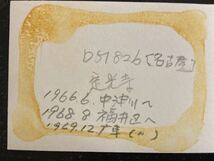 D51826[名古屋]
定光寺
1966.6.中津川へ
1968 8 福井区へ
1969.12